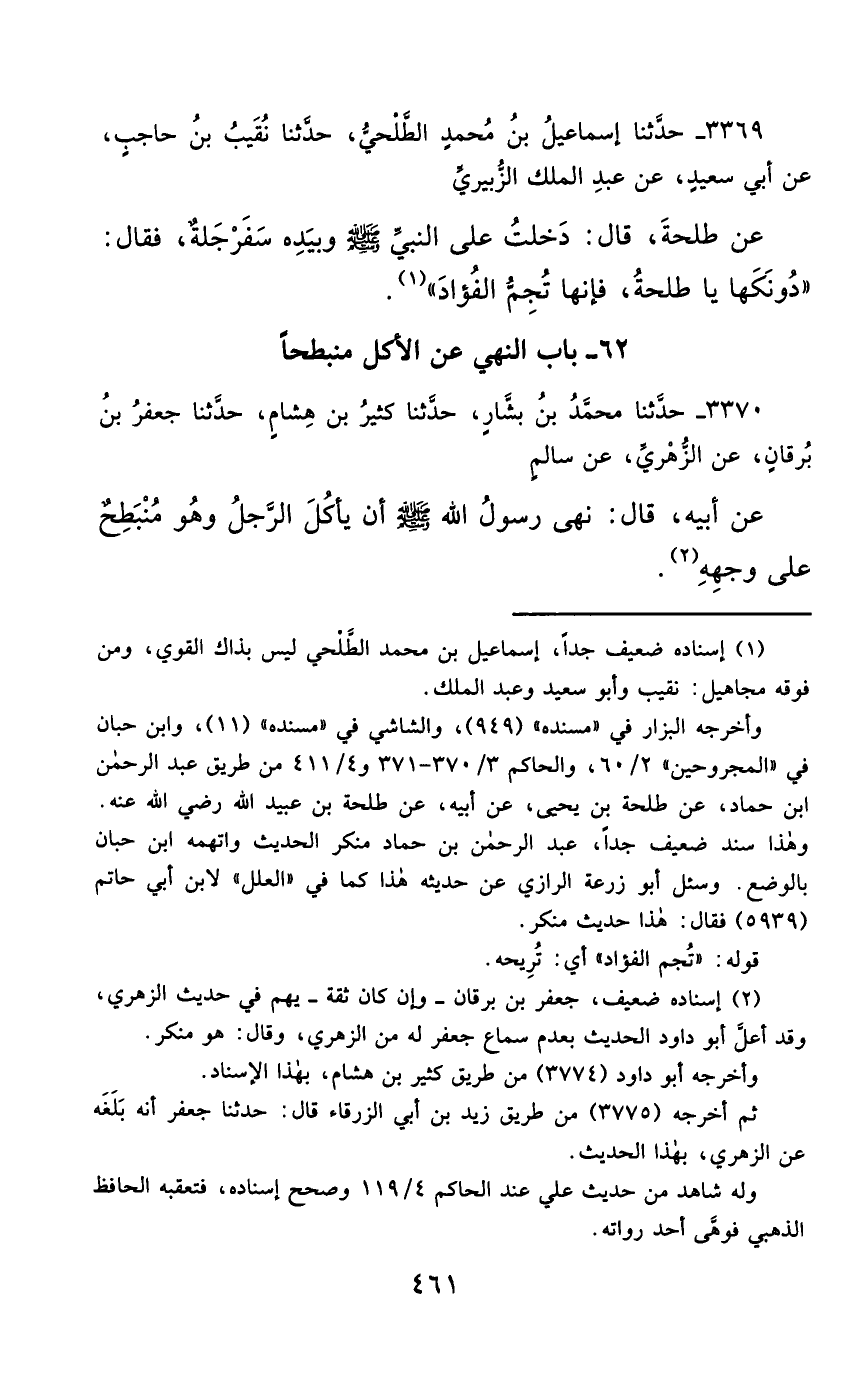 ٣٣٦٩ـ حدَّثنا إسماعيلُ بنُ مُحمدٍ الطَّلْحيُّ، حدَّثنا نُقَيبُ بنُ حاجبٍ،
عن أبي سعيدٍ، عن عبدِ الملك الزُّبيريِّ
عن طلحةَ، قال: دَخلتُ على النبيِّ ﷺ وبيَدِه سَفَرْجَلةٌ، فقال:
«دُونَكَها يا طلحةُ، فإنها تُجِمُّ الفُؤادَ»(١).
٦٢ـ باب النهي عن الأكل منبطحاً
٣٣٧٠ـ حدَّثنا محمَّدُ بنُ بشَّارٍ، حدَّثنا كثيرُ بن هِشامٍ، حدَّثنا جعفرُ بنُ
بُرقانٍ، عن الزُّهْريِّ، عن سالمٍ
عن أبيه، قال: نهى رسولُ الله ﷺ أن يأكُلَ الرَّجلُ وهُو مُنْبَطِحٌ
على وجهِهِ(٢).
(١) إسناده ضعيف جداً، إسماعيل بن محمد الطَّلْحي ليس بذاك القوي، ومن
فوقه مجاهيل: نقيب وأبو سعيد وعبد الملك.
وأخرجه البزار في «مسنده» (٩٤٩)، والشاشي في «مسنده» (١١)، وابن حبان
في «المجروحين» ٢/ ٦٠، والحاكم ٣/ ٣٧٠-٣٧١ و٤/ ٤١١ من طريق عبد الرحمٰن
ابن حماد، عن طلحة بن يحيى، عن أبيه، عن طلحة بن عبيد الله رضي الله عنه.
وهٰذا سند ضعيف جداً، عبد الرحمٰن بن حماد منكر الحديث واتهمه ابن حبان
بالوضع. وسئل أبو زرعة الرازي عن حديثه هٰذا كما في «العلل» لابن أبي حاتم
(٥٩٣٩) فقال: هٰذا حديث منكر.
قوله: «تُجم الفؤاد» أي: تُرِيحه.
(٢) إسناده ضعيف، جعفر بن برقان ـ وإن كان ثقة ـ يهم في حديث الزهري،
وقد أعلَّ أبو داود الحديث بعدم سماع جعفر له من الزهري، وقال: هو منكر.
وأخرجه أبو داود (٣٧٧٤) من طريق كثير بن هشام، بهٰذا الإسناد.
ثم أخرجه (٣٧٧٥) من طريق زيد بن أبي الزرقاء قال: حدثنا جعفر أنه بَلَغَه
عن الزهري، بهٰذا الحديث.
وله شاهد من حديث علي عند الحاكم ٤/ ١١٩ وصحح إسناده، فتعقبه الحافظ
الذهبي فوهَّى أحد رواته.
٤٦١